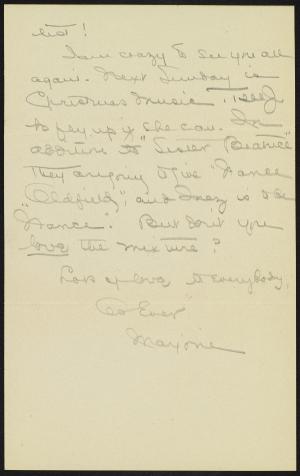 not!
I am crazy to see you all
again. Next Sunday is
Christmas music.
to pay up if she can. In
addition to "Sister Beatrice"
they are going to give "Nance
Oldfield", and Inez is to be
"Nance". But don't you
love the mixture?
Lots of love to everybody,
As Ever
Marjorie